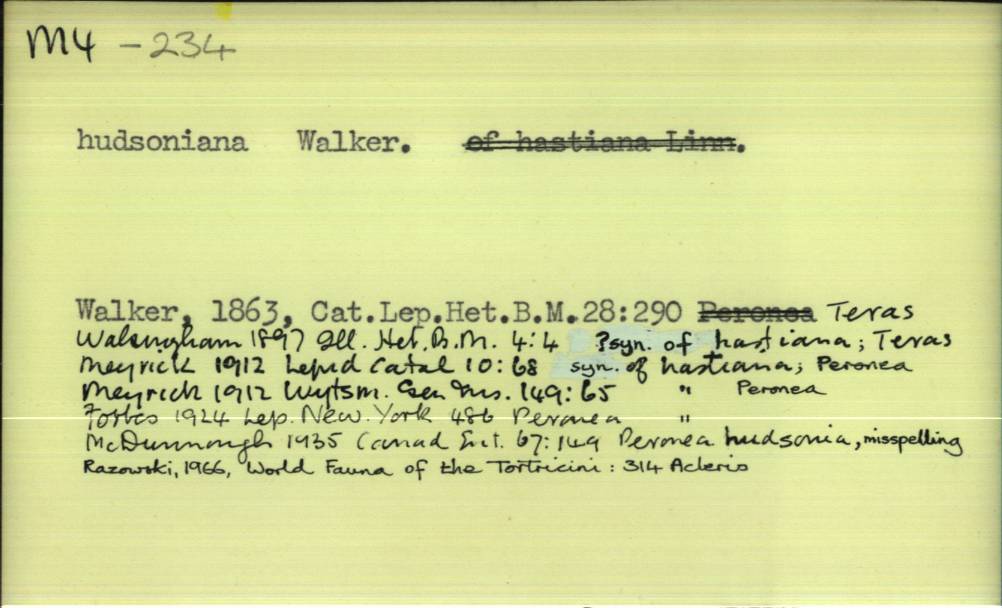 M4 - 234
hudsoniana Walker. of hastiana Linn.
Walker, 1863, Cat.Lep.Het.B.M.28:290 Peronea Teras
Walsingham 1897 Ill. Het. B.M. 4:4 ?syn. of hastiana; Teras
Meyrick 1912 Lepid Catal 10:68 syn. of hastiana; Peronea
Meyrick 1912 Wytsm. Gen Ins. 149:65 " Peronea
Forbes 1924 Lep. New. York 486 Peronea "
McDunnough 1935 Canad Ent. 67:149 Peronea hudsonia, misspelling
Razowski, 1966, World Fauna of the Tortricini : 314 Acleris